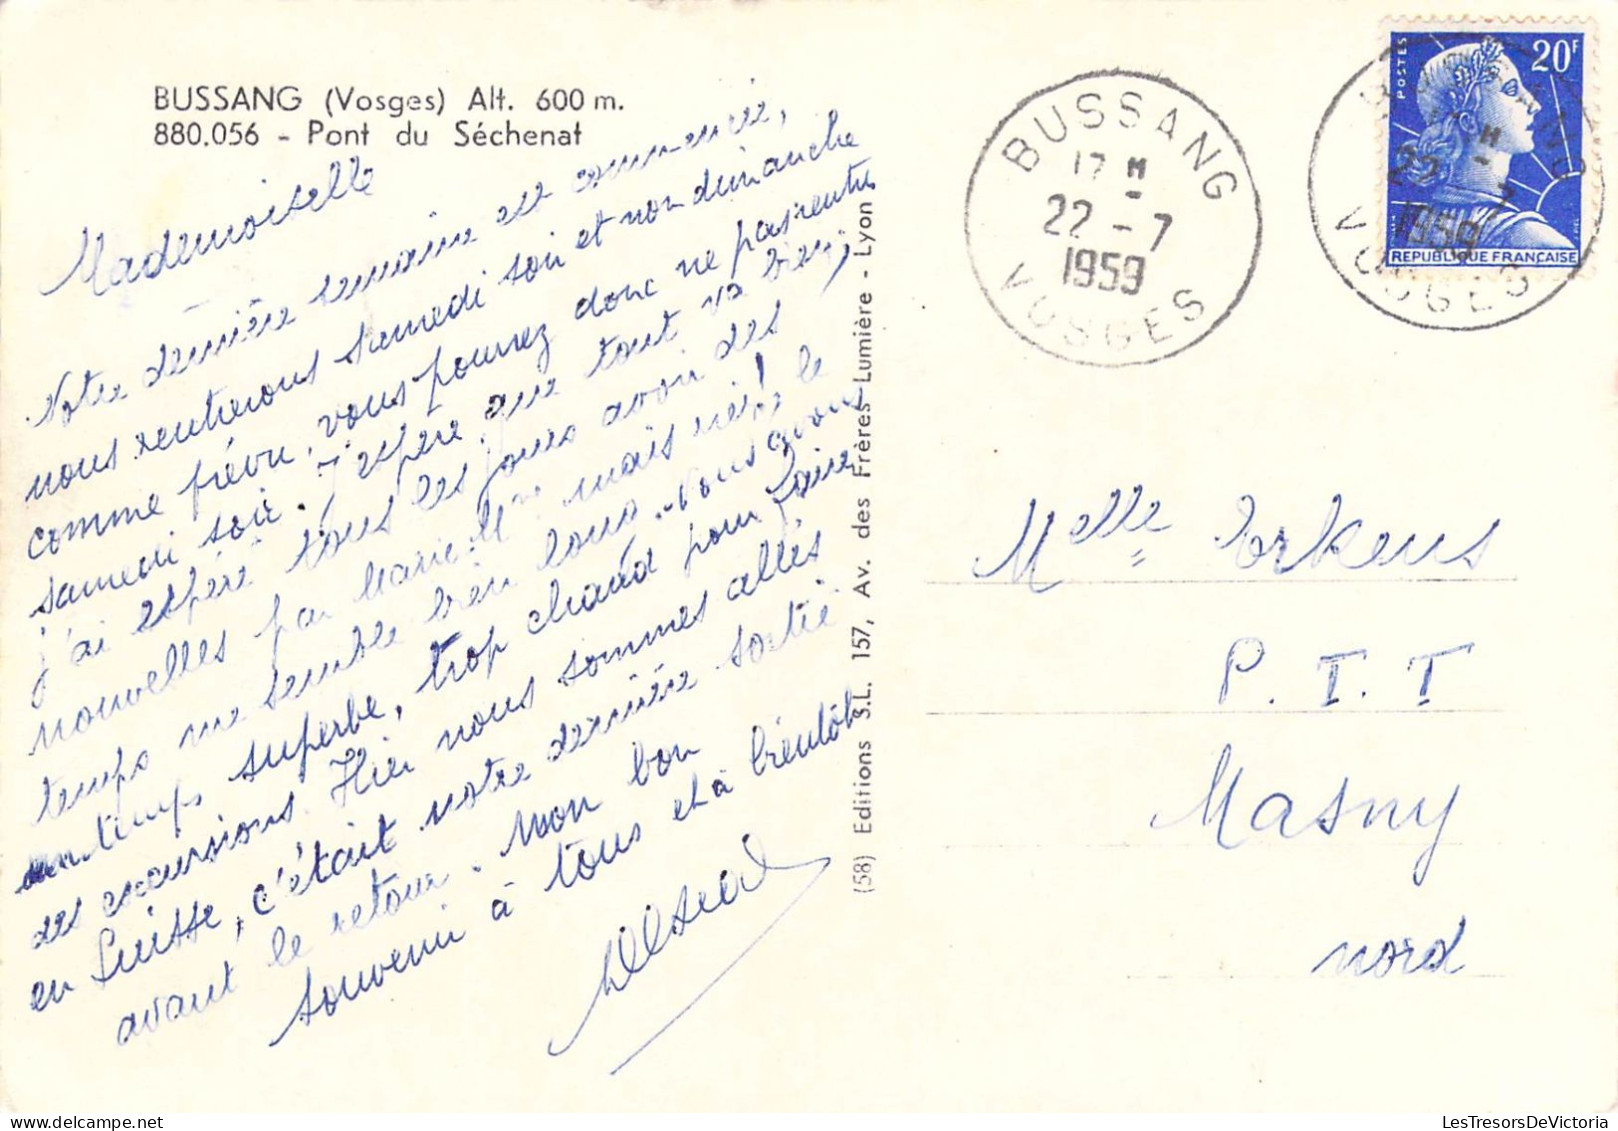 BUSSANG (Vosges) Alt. 600 m.
880.056 - Pont du Séchenat
Mademoiselle
Notre dernière semaine est commencée,
nous rentrerons samedi soir et non dimanche
comme prévu, vous pourrez donc ne pas rentrer
samedi soir. J'espère que tout va bien,
j'ai espéré tous les jours avoir des
nouvelles par Marie M mais rien! le
temps me semble bien long. Nous avons
un temps superbe, trop chaud pour faire
des excursions. Hier nous sommes allés
en Suisse, c'était notre dernière sortie
avant le retour. Mon bon
souvenir à tous et à bientôt
(58) Editions S.L. 157, Av. des Frères-Lumière - Lyon
BUSSANG
17 H
22 - 7
1959
VOSGES
POSTES
20F
REPUBLIQUE FRANÇAISE
BUSSANG
17 H
22 - 7
1959
VOSGES
Melle Erkens
P. T. T
Masny
nord
LesTresorsDeVictoria